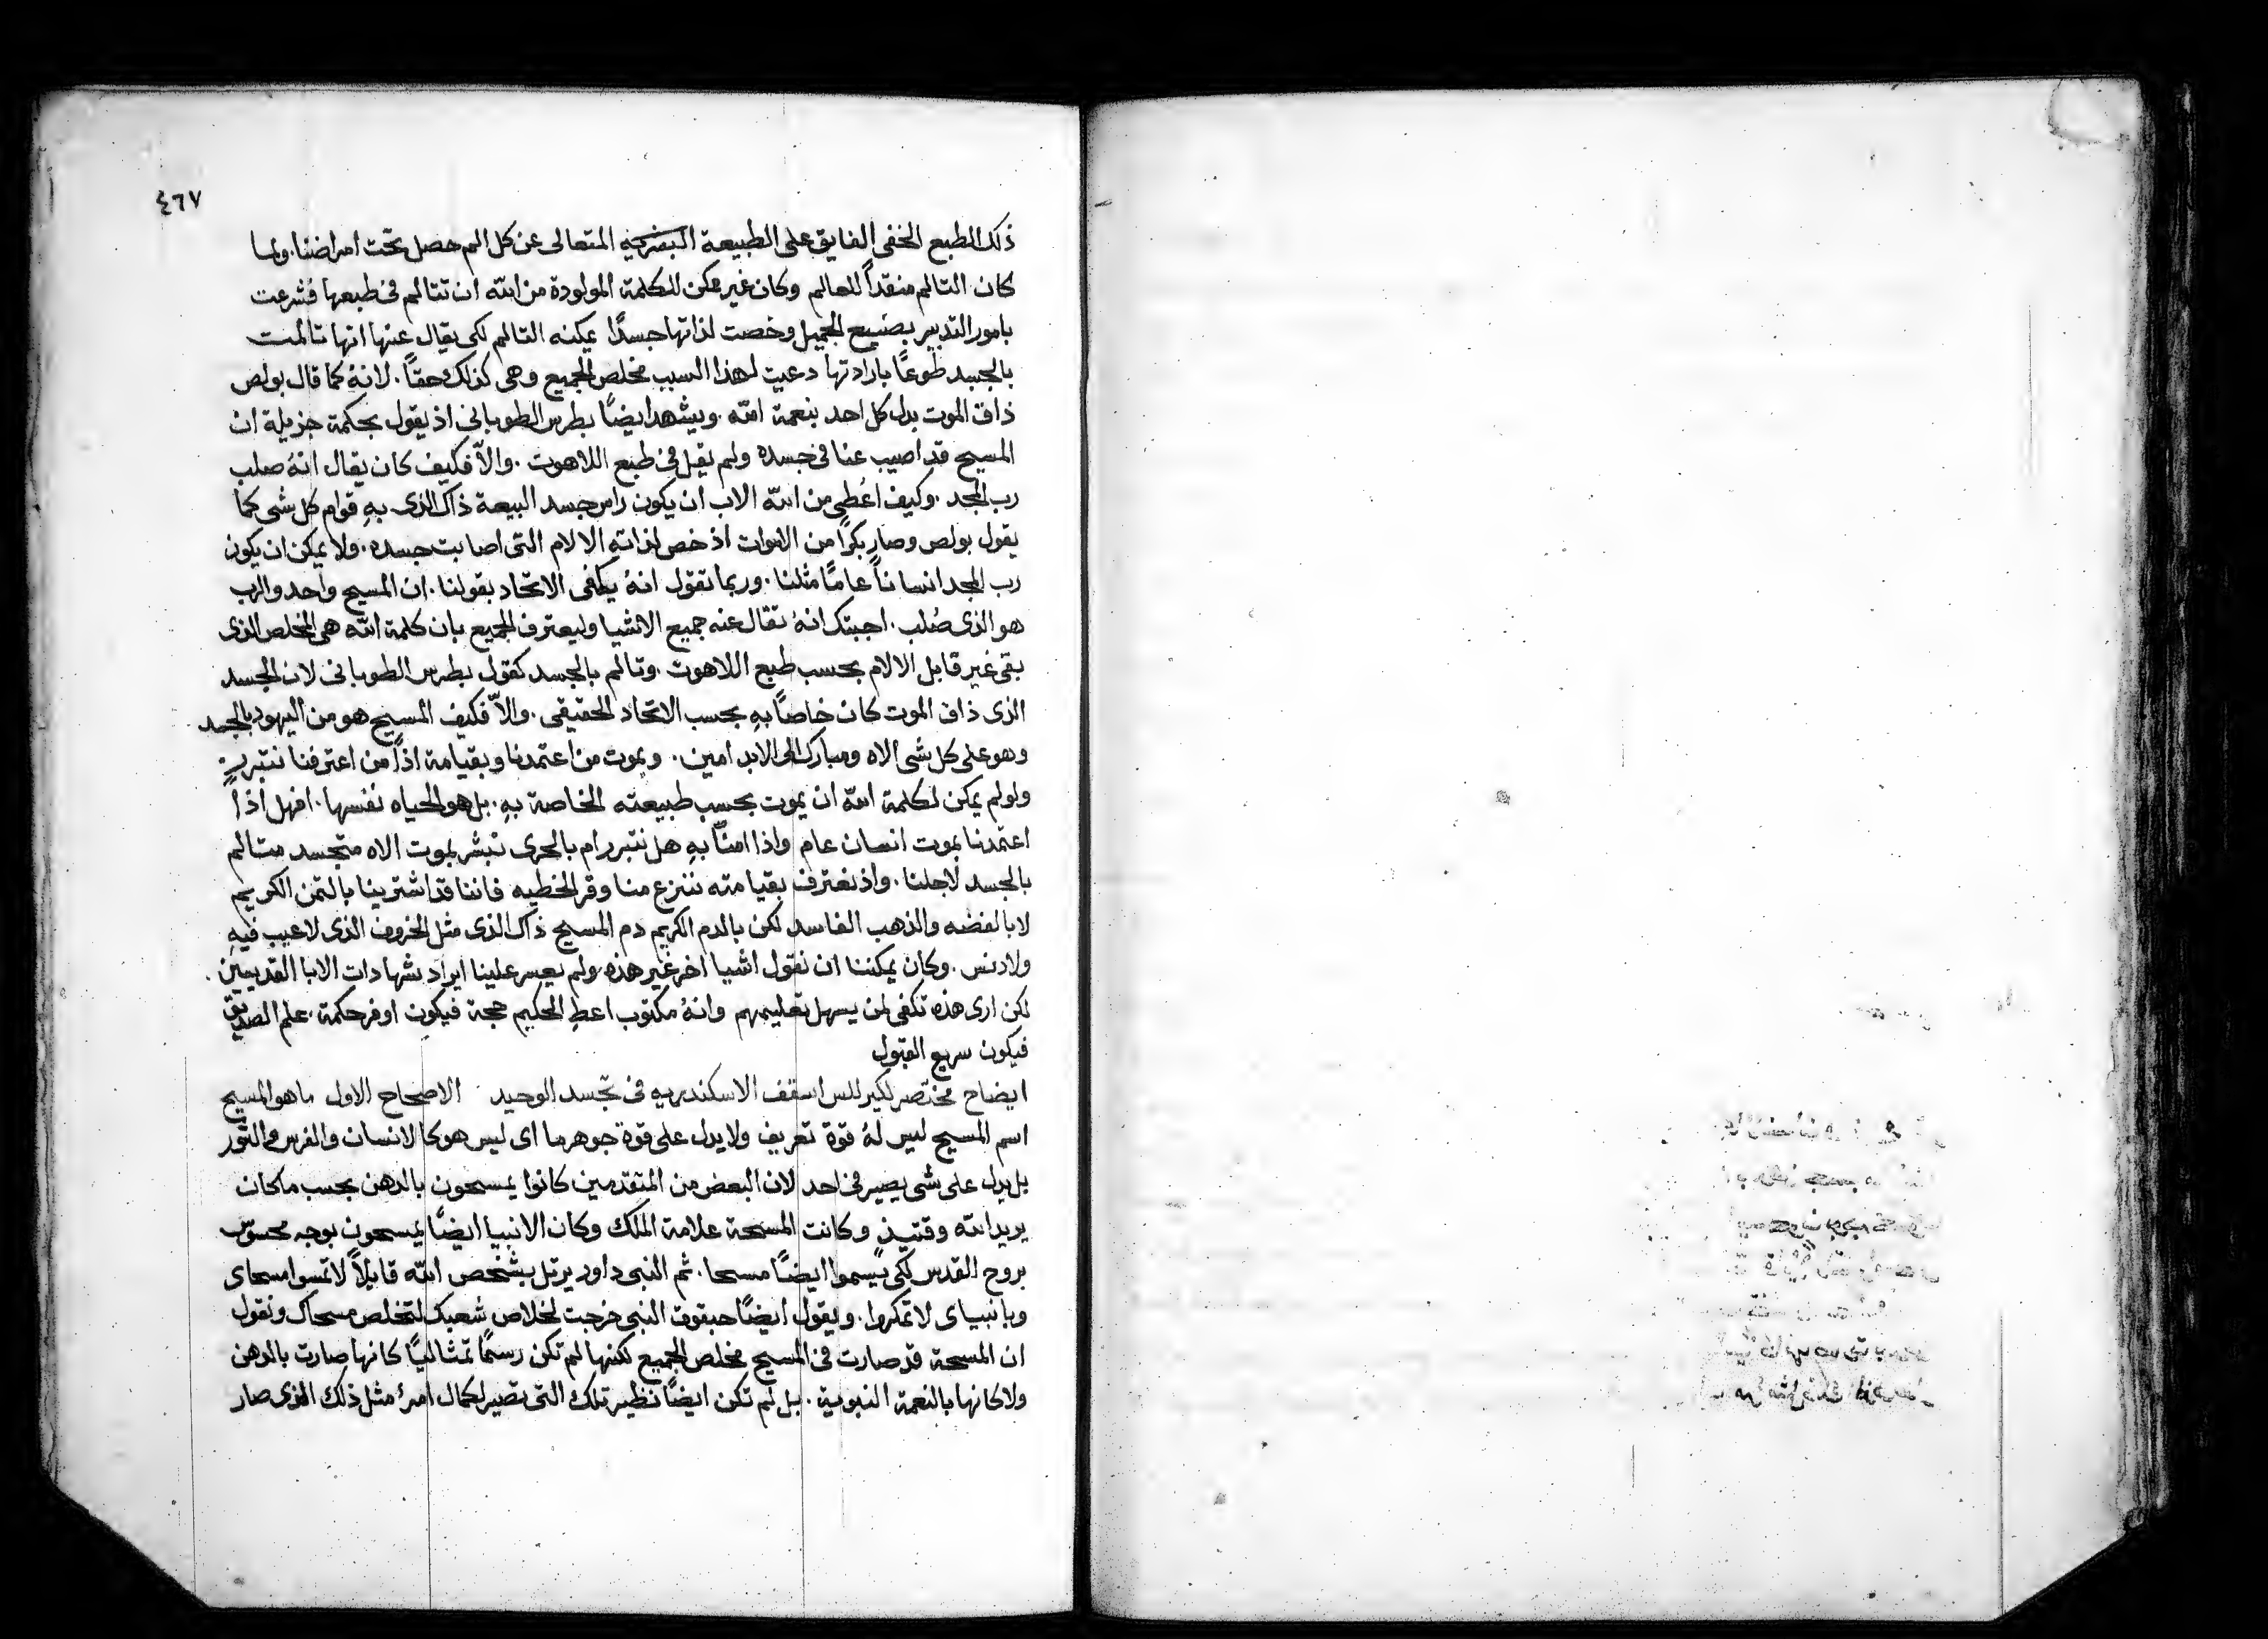 ٤٦٧
ذلك الطبع الخفى الفايق على الطبيعة البشريه المتعالى عن كل الم حصل تحت امراضنا. ولما
كان التالم منقداً للعالم وكان غير ممكن للكلمة المولودة من الله ان تتالم فى طبعها فشرعت
بامور التدبير بصنيع الجميل وخصت لذاتها جسدًا يمكنه التالم لكى يقال عنها انها تالمت
بالجسد طوعًا بارادتها دعيت لهذا السبب مخلص الجميع وهى كذلك حقًا. لانهُ كما قال بولص
ذاق الموت بدل كل احد بنعمة الله. ويشهد ايضًا بطرس الطوبانى اذ يقول بحكمة جزيلة ان
المسيح قد اصيب عنا فى جسده ولم يقيل فى طبع اللاهوت. والاّ فكيف كان يقال انهُ صلب
رب المجد. وكيف اُعطى من الله الاب ان يكون راس جسد البيعة ذاك الذى بهِ قوام كل شى كما
يقول بولص وصار بكرًا من الاموات اذ خص لذاتهِ الالام التى اصابت جسده. ولا يمكن ان يكون
رب المجد انساناً عامًا مثلنا. وربما تقول انهُ يكفى الاتحاد بقولنا. ان المسيح واحد والرب
هو الذى صُلب. اجبتك انهُ تقال عنه جميع الاشيا وليعترف الجميع بان كلمة الله هى المخلص الذى
بقى غير قابل الالام بحسب طبع اللاهوت. وتالم بالجسد كقول بطرس الطوبانى لان الجسد
الذى ذاق الموت كان خاصًا بهِ بحسب الاتحاد الحقيقى. والاّ فكيف المسيح هو من اليهود بالجسد
وهو على كل شى الاه ومبارك الى الابد امين. وبموت من اعتمدنا وبقيامة اذًا من اعترفنا نتبرر
ولو لم يمكن لكلمة الله ان يموت بحسب طبيعته الخاصة بهِ. بل هو الحياه نفسها. افهل اذاً
اعتمدنا بموت انسان عام واذا امنّا بهِ هل نتبرر ام بالحرى نبشر بموت الاه متجسد متالم
بالجسد لاجلنا. واذ نعترف بقيامته ننزع منا وقر الخطيه فاننا قد اشترينا بالثمن الكريم
لا بالفضه والذهب الفاسد لكن بالدم الكريم دم المسيح ذاك الذى مثل الخروف الذى لا عيب فيهِ
ولا دنس. وكان يمكننا ان نقول اشيا اخر غير هذه ولم يعسر علينا ايراد شهادات الابا القديمين.
لكن ارى هذه تكفى لمن يسهل تعليمهم وانهُ مكتوب اعطِ الحكيم حجة فيكون اوفر حكمة. علم الصديق
فيكون سريع القبول
ايضاح مختصر لكيرللس اسقف الاسكندريه فى تجسد الوحيد الاصحاح الاول ما هو المسيح
اسم المسيح ليس لهُ قوة تعريف ولا يدل على قوة جوهر ما اى ليس هو كالانسان والفرس والثور
بل يدل على شى يصير فى احد لان البعض من المتقدمين كانوا يمسحون بالدهن بحسب ما كان
يريد الله وقتيذٍ وكانت المسحة علامة الملك وكان الانبيا ايضًا يمسحون بوجه محسوس
بروح القدس لكى يسموا ايضًا مسحا. ثم النبى داود يرتل بشخص الله قايلاً لا تمسوا مسحاى
وبانبياى لا تمكروا. ويقول ايضًا حبقوق النبى خرجت لخلاص شعبك لتخلص مسحاك ونقول
ان المسحة قد صارت فى المسيح مخلص الجميع لكنها لم تكن رسمًا تمثاليًا كانها صارت بالدهن
ولا كانها بالنعمة النبوية. بل لم تكن ايضًا نظير تلك التى تصير لكمال امرءٍ مثل ذلك الذى صار